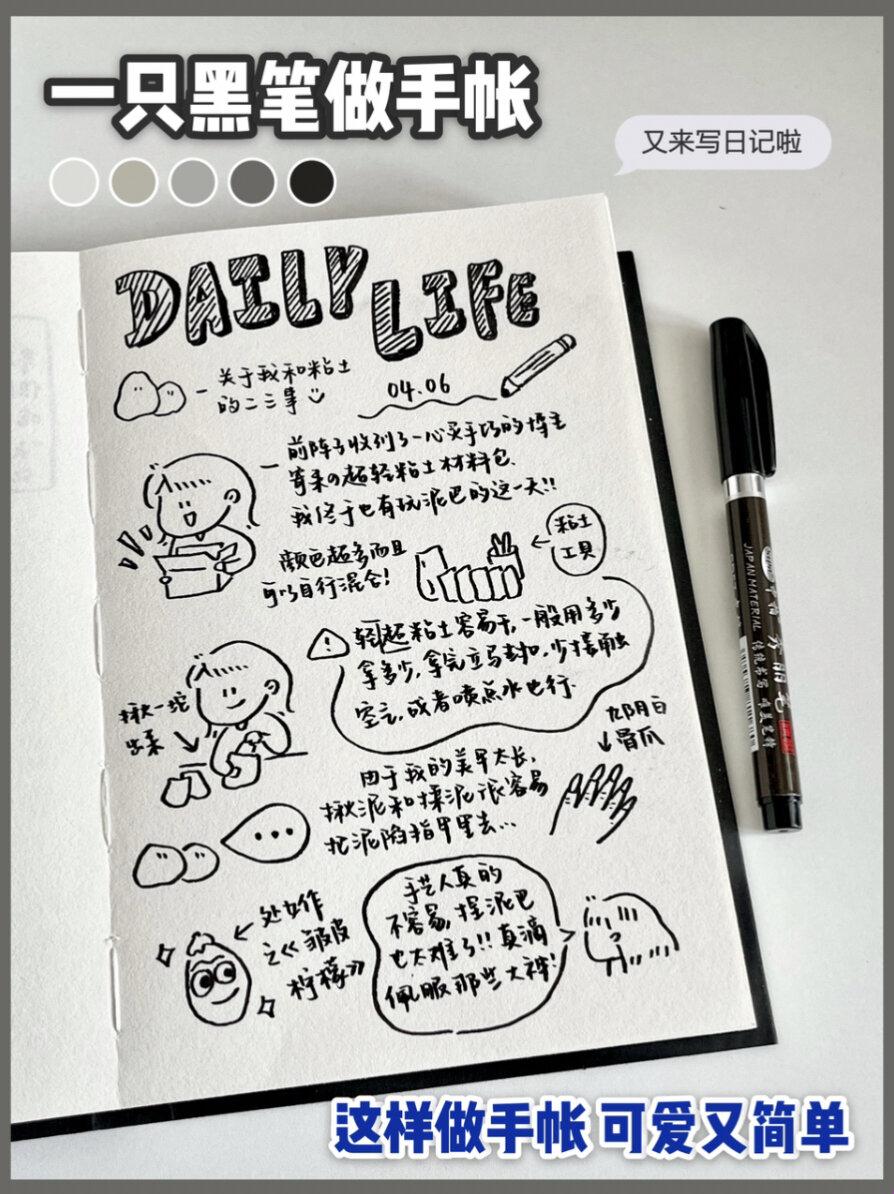 一只黑笔做手帐
又来写日记啦
DAILY
LIFE
关于我和粘土
的二三事
04.06
前阵子收到了一心灵手巧的博主
寄来の超轻粘土材料包.
我终于也有玩泥巴的这一天!!
颜色超多而且
可以自行混合!
粘土
工具
!
轻超粘土容易干,一般用多少
拿多少,拿完立马封口,少接触
空气,或者喷点水也行.
揪一坨
出来
九阴白
骨爪
由于我的美甲太长,
揪泥和揉泥很容易
把泥陷指甲里去...
处女作
之《皱皮
柠檬》
手艺人真的
不容易,捏泥巴
也太难了!!真滴
佩服那些大神!
JAPAN MATERIAL
秀丽笔
传统书写
这样做手帐 可爱又简单